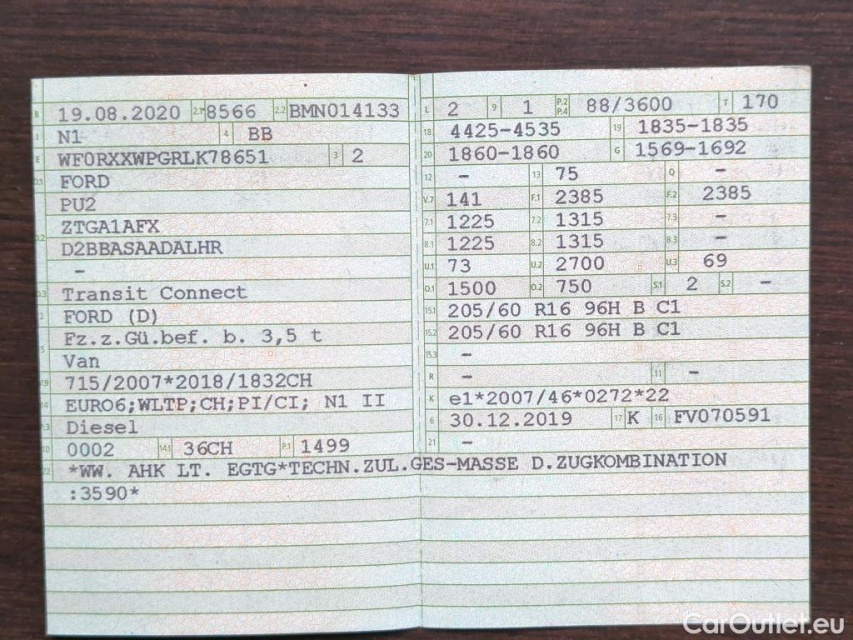 B 19.08.2020 2.1 8566 2.2 BMN014133
J N1 4 BB
E WF0RXXWPGRLK78651 3 2
D.1 FORD
PU2
D.2 ZTGA1AFX
D2BBASAADALHR
–
D.3 Transit Connect
2 FORD (D)
5 Fz.z.Gü.bef. b. 3,5 t
Van
V.9 715/2007*2018/1832CH
14 EURO6;WLTP;CH;PI/CI; N1 II
P.3 Diesel
10 0002 14.1 36CH P.1 1499
L 2 9 1 P.2 P.4 88/3600 T 170
18 4425-4535 19 1835-1835
20 1860-1860 G 1569-1692
12 – 13 75 Q –
V.7 141 F.1 2385 F.2 2385
7.1 1225 7.2 1315 7.3 –
8.1 1225 8.2 1315 8.3 –
U.1 73 U.2 2700 U.3 69
O.1 1500 O.2 750 S.1 2 S.2 –
15.1 205/60 R16 96H B C1
15.2 205/60 R16 96H B C1
15.3 –
R – 11 –
K e1*2007/46*0272*22
6 30.12.2019 17 K 16 FV070591
21 –
22 *WW. AHK LT. EGTG*TECHN.ZUL.GES-MASSE D.ZUGKOMBINATION
:3590*
CarOutlet.eu